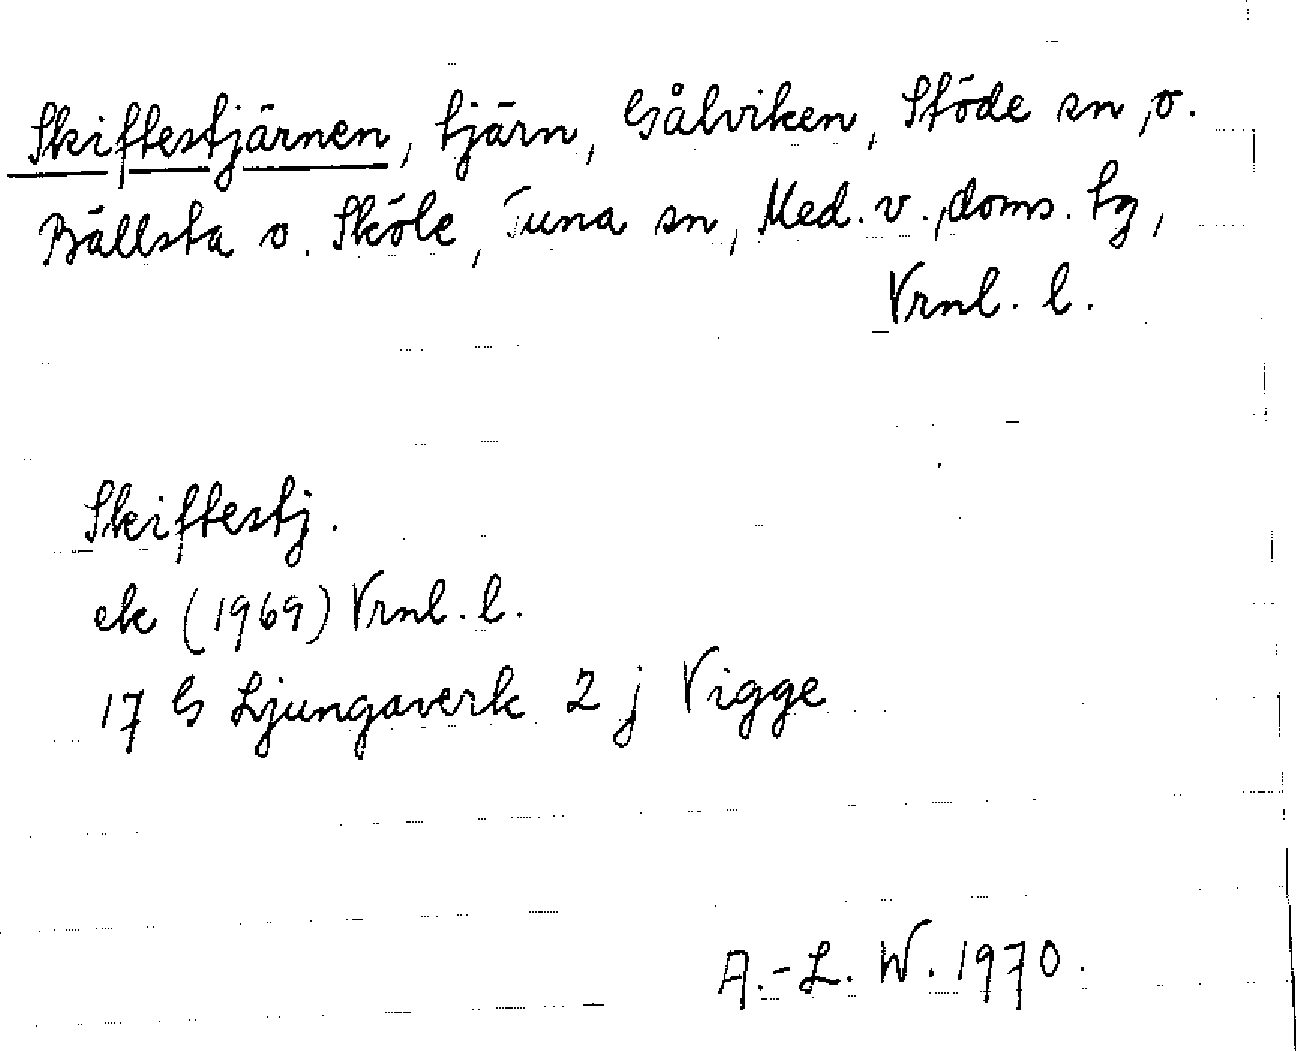 Skiftestjärnen, tjärn, Gålviken, Stöde sn, o.
Bällsta o. Sköle, Tuna sn, Med. v., doms. tg,
Vrnl. l.
Skiftestj.
ek (1969) Vrnl. l.
17 G Ljungaverk 2 j Vigge
A.-L. W. 1970.